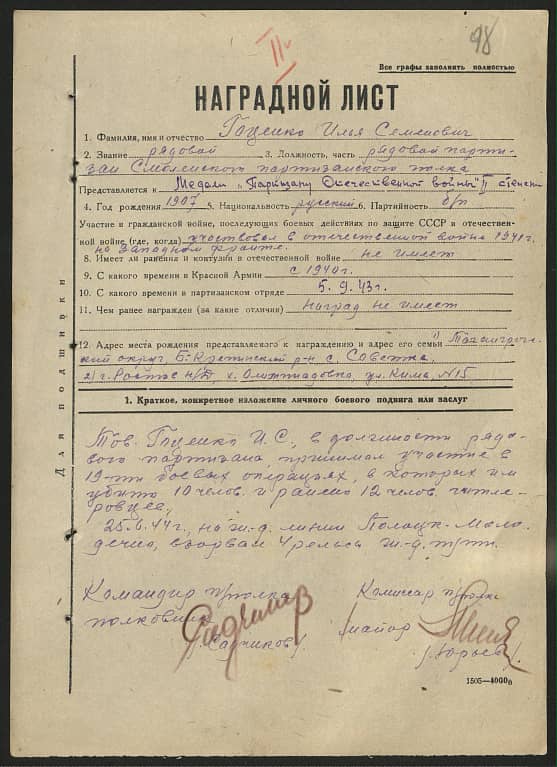 98
II
Все графы заполнить полностью
НАГРАДНОЙ ЛИСТ
1. Фамилия, имя и отчество Гоценко Илья Семенович
2. Звание рядовой 3. Должность, часть рядовой парти-
зан Смоленского партизанского полка
Представляется к Медали „Партизану Отечественной войны" II степени
4. Год рождения 1907 5. Национальность русский 6. Партийность б/п
Участие в гражданской войне, последующих боевых действиях по защите СССР и отечествен-
ной войне (где, когда) участвовал в отечественной войне 1941г.
на западном фронте.
8. Имеет ли ранения и контузии в отечественной войне не имеет
9. С какого времени в Красной Армии с 1940г.
10. С какого времени в партизанском отряде 5.9.43г.
11. Чем ранее награжден (за какие отличия) наград не имеет
12. Адрес места рождения представляемого к награждению и адрес его семьи 1) Таганрог-
ский округ, р-н с. Советка
2) г. Ростов н/Д, х. Олимпиадовка, ул. Кима, №15.
Для подшивки
1. Краткое, конкретное изложение личного боевого подвига или заслуг
Тов. Гоценко И.С., в должности рядо-
вого партизана, принимал участие в
19-ти боевых операциях, в которых им
убито 10 челов. и ранено 12 челов. гитле-
ровцев.
25.6.44г., на ж-д. линии Полоцк-Моло
дечно, взорвал 4 рельса ж-д. пути.
Командир п/полка Комиссар п/полка
полковник майор
/Садчиков/ /Юрьев/.
1505—4000в